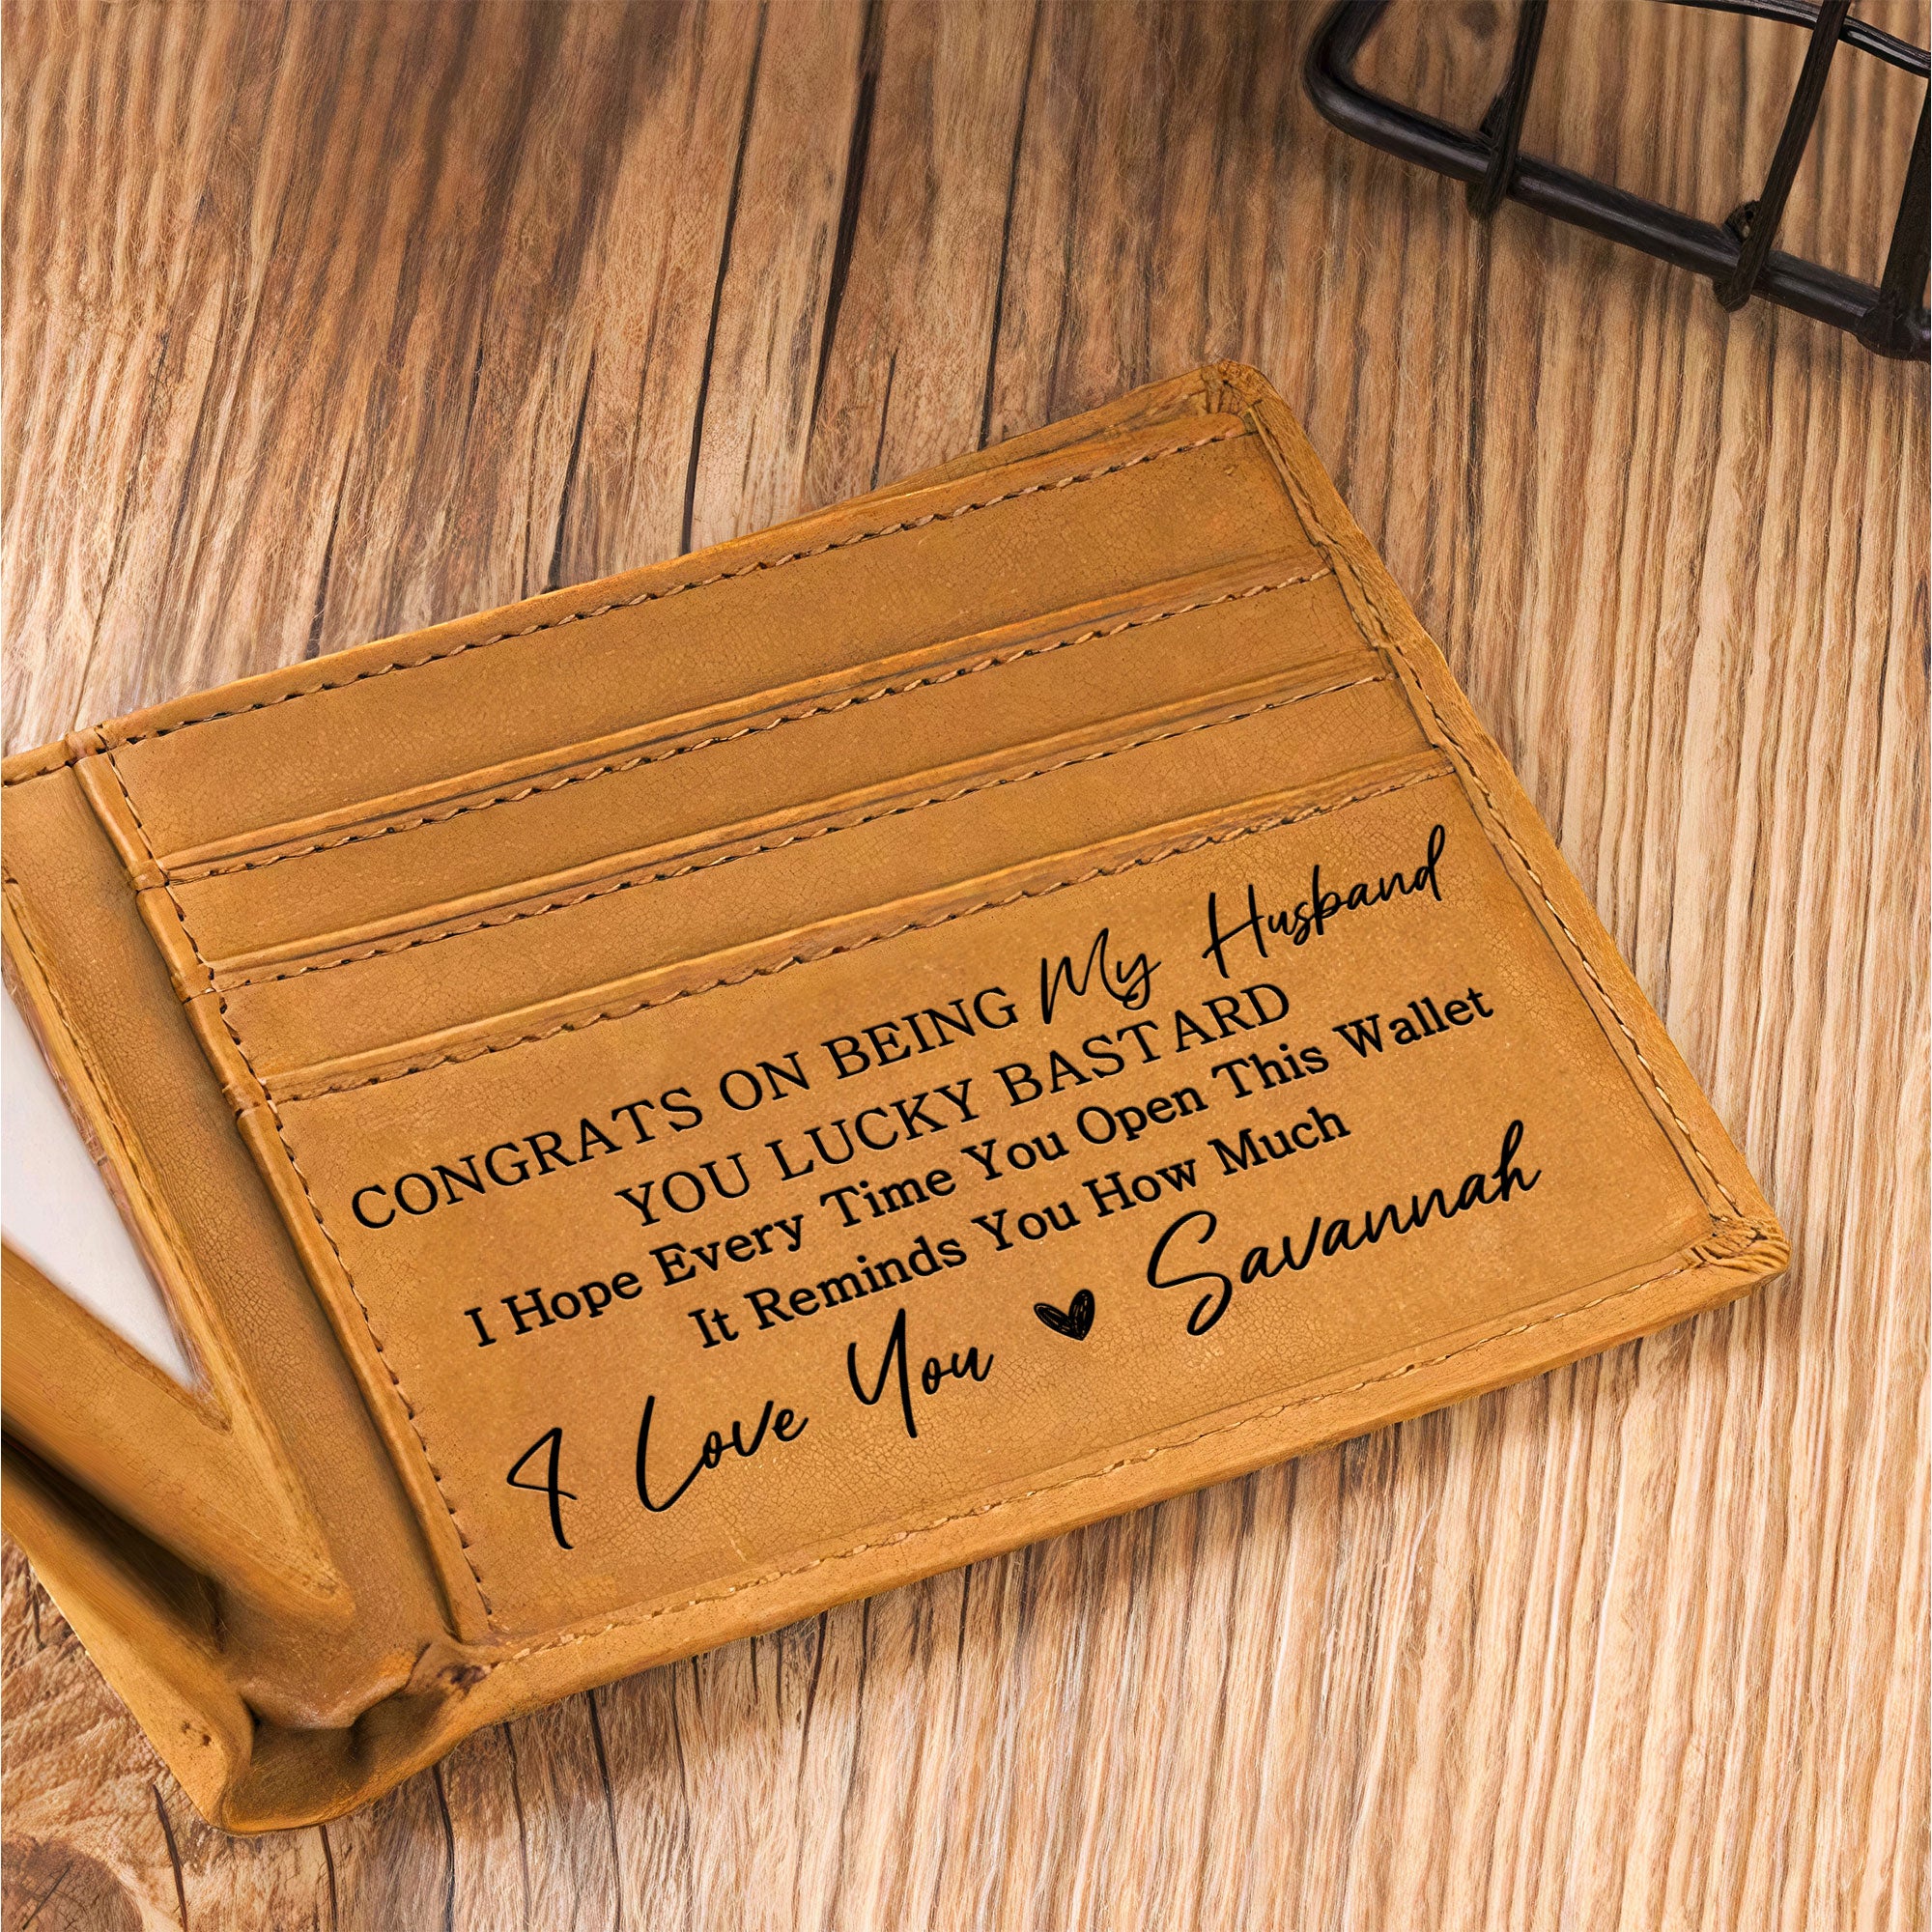 CONGRATS ON BEING My Husband
YOU LUCKY BASTARD
I Hope Every Time You Open This Wallet
It Reminds You How Much
I Love You ♥ Savannah